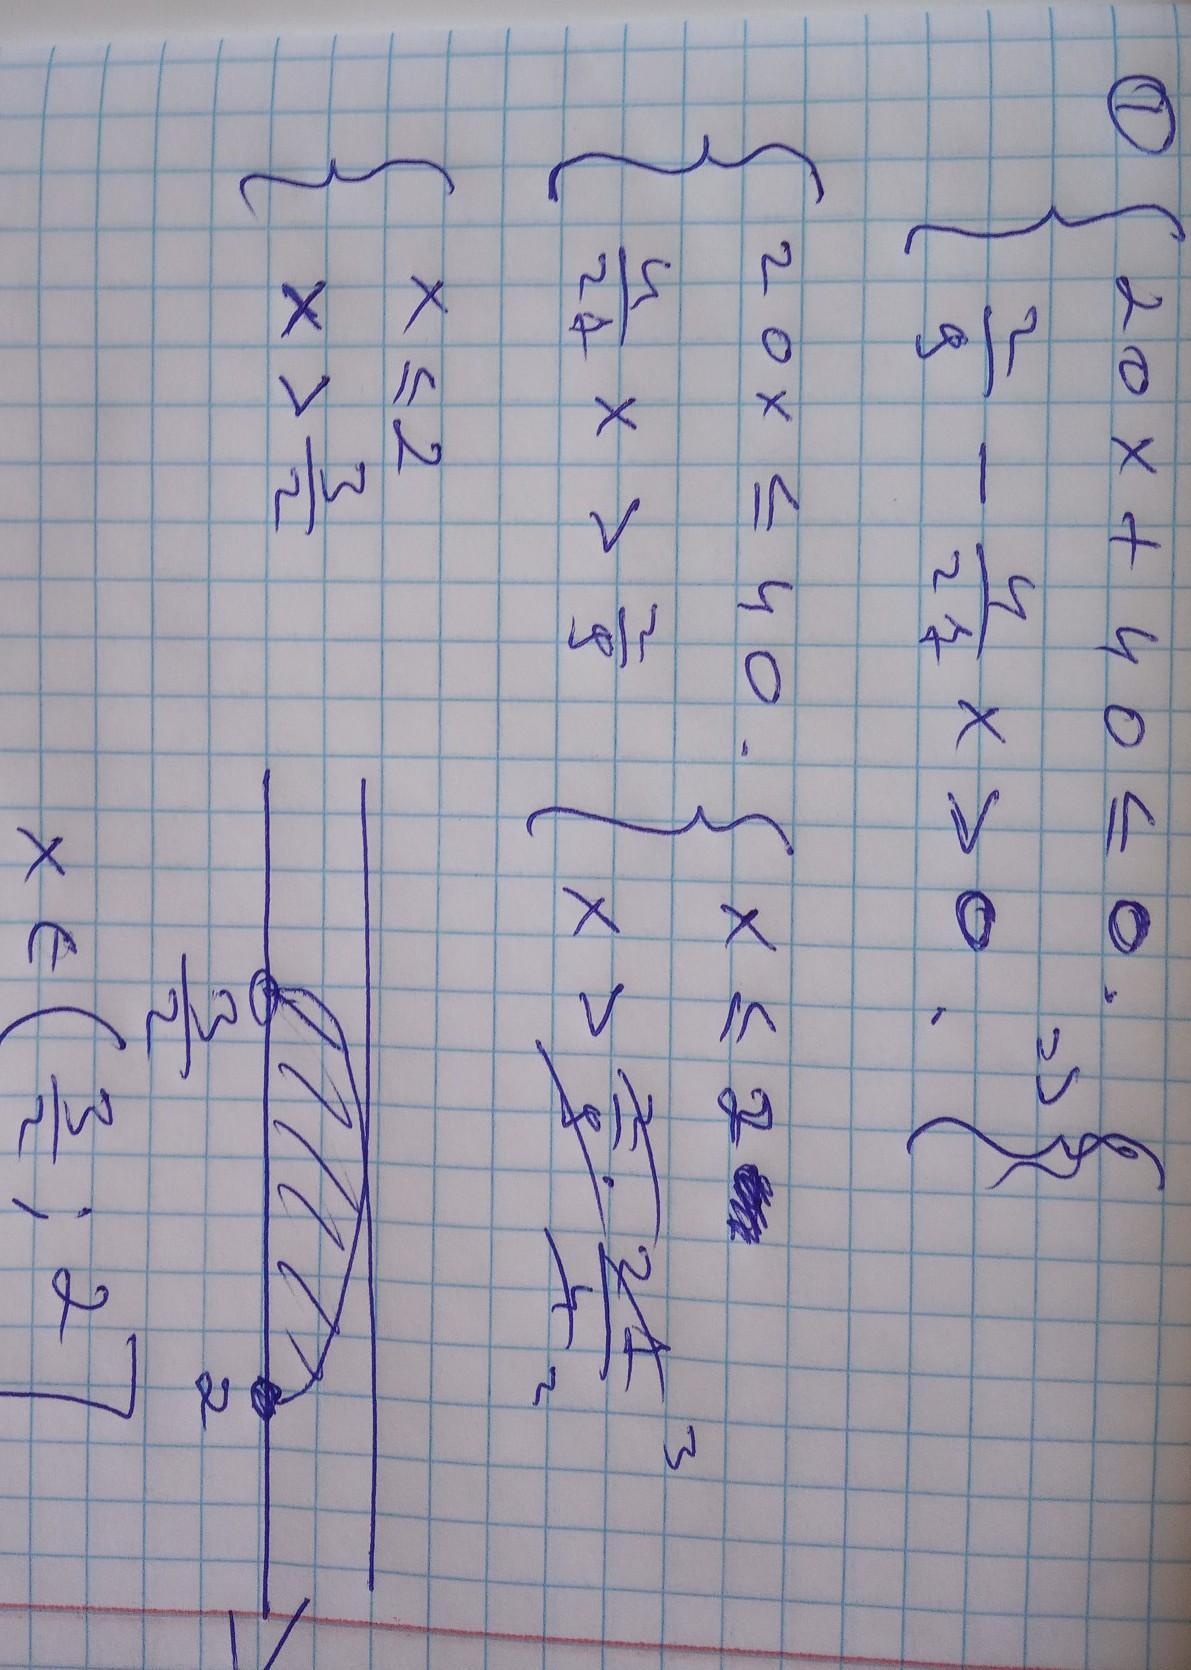 ① { 20x + 40 ≤ 0.
2/8 - 4/24 x > 0.
{ 20x ≤ 40.
4/24 x > 2/8
{ x ≤ 2
x > 2/8 · 24/4 3 2
{ x ≤ 2
x > 3/2
3/2 2
x ∈ (3/2 ; 2]